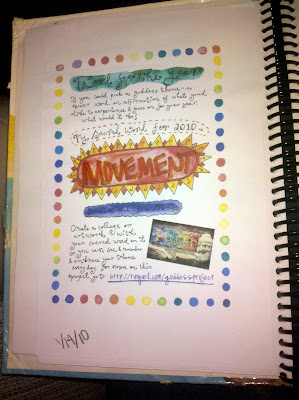 Word for the Year
If you could pick a goddess theme - a
sacred word, an affirmation of what you'd
like to experience & focus on for your year
what would it be?
My sacred word for 2010...
MOVEMENT
Create a collage or
artwork with
your sacred word on it
so you can see & remember
& embrace your theme
every day. For more on this
project go to http://tinyurl.com/goddessproject
1/19/10